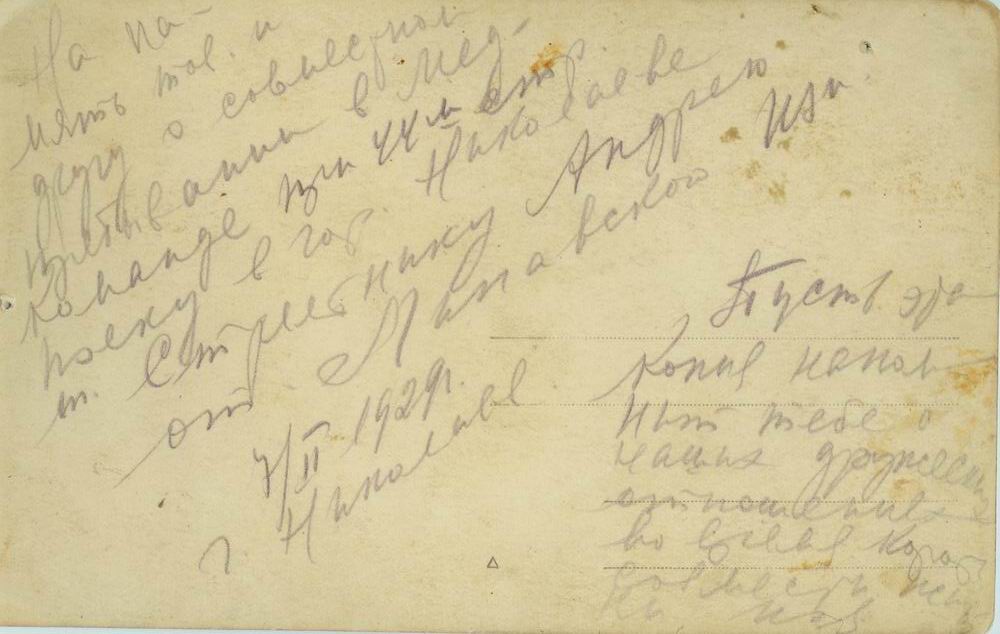 На па-
мять тов. и
другу о совместном
пребывании в мед-
команде при 44м стр
полку в гор. Николаеве
т. Стрелетнику Андрею
от Манавской
7/II 1929г.
г. Николаев
Пусть эта
копия напом
нит тебе о
наших дружески
отношениях
во время